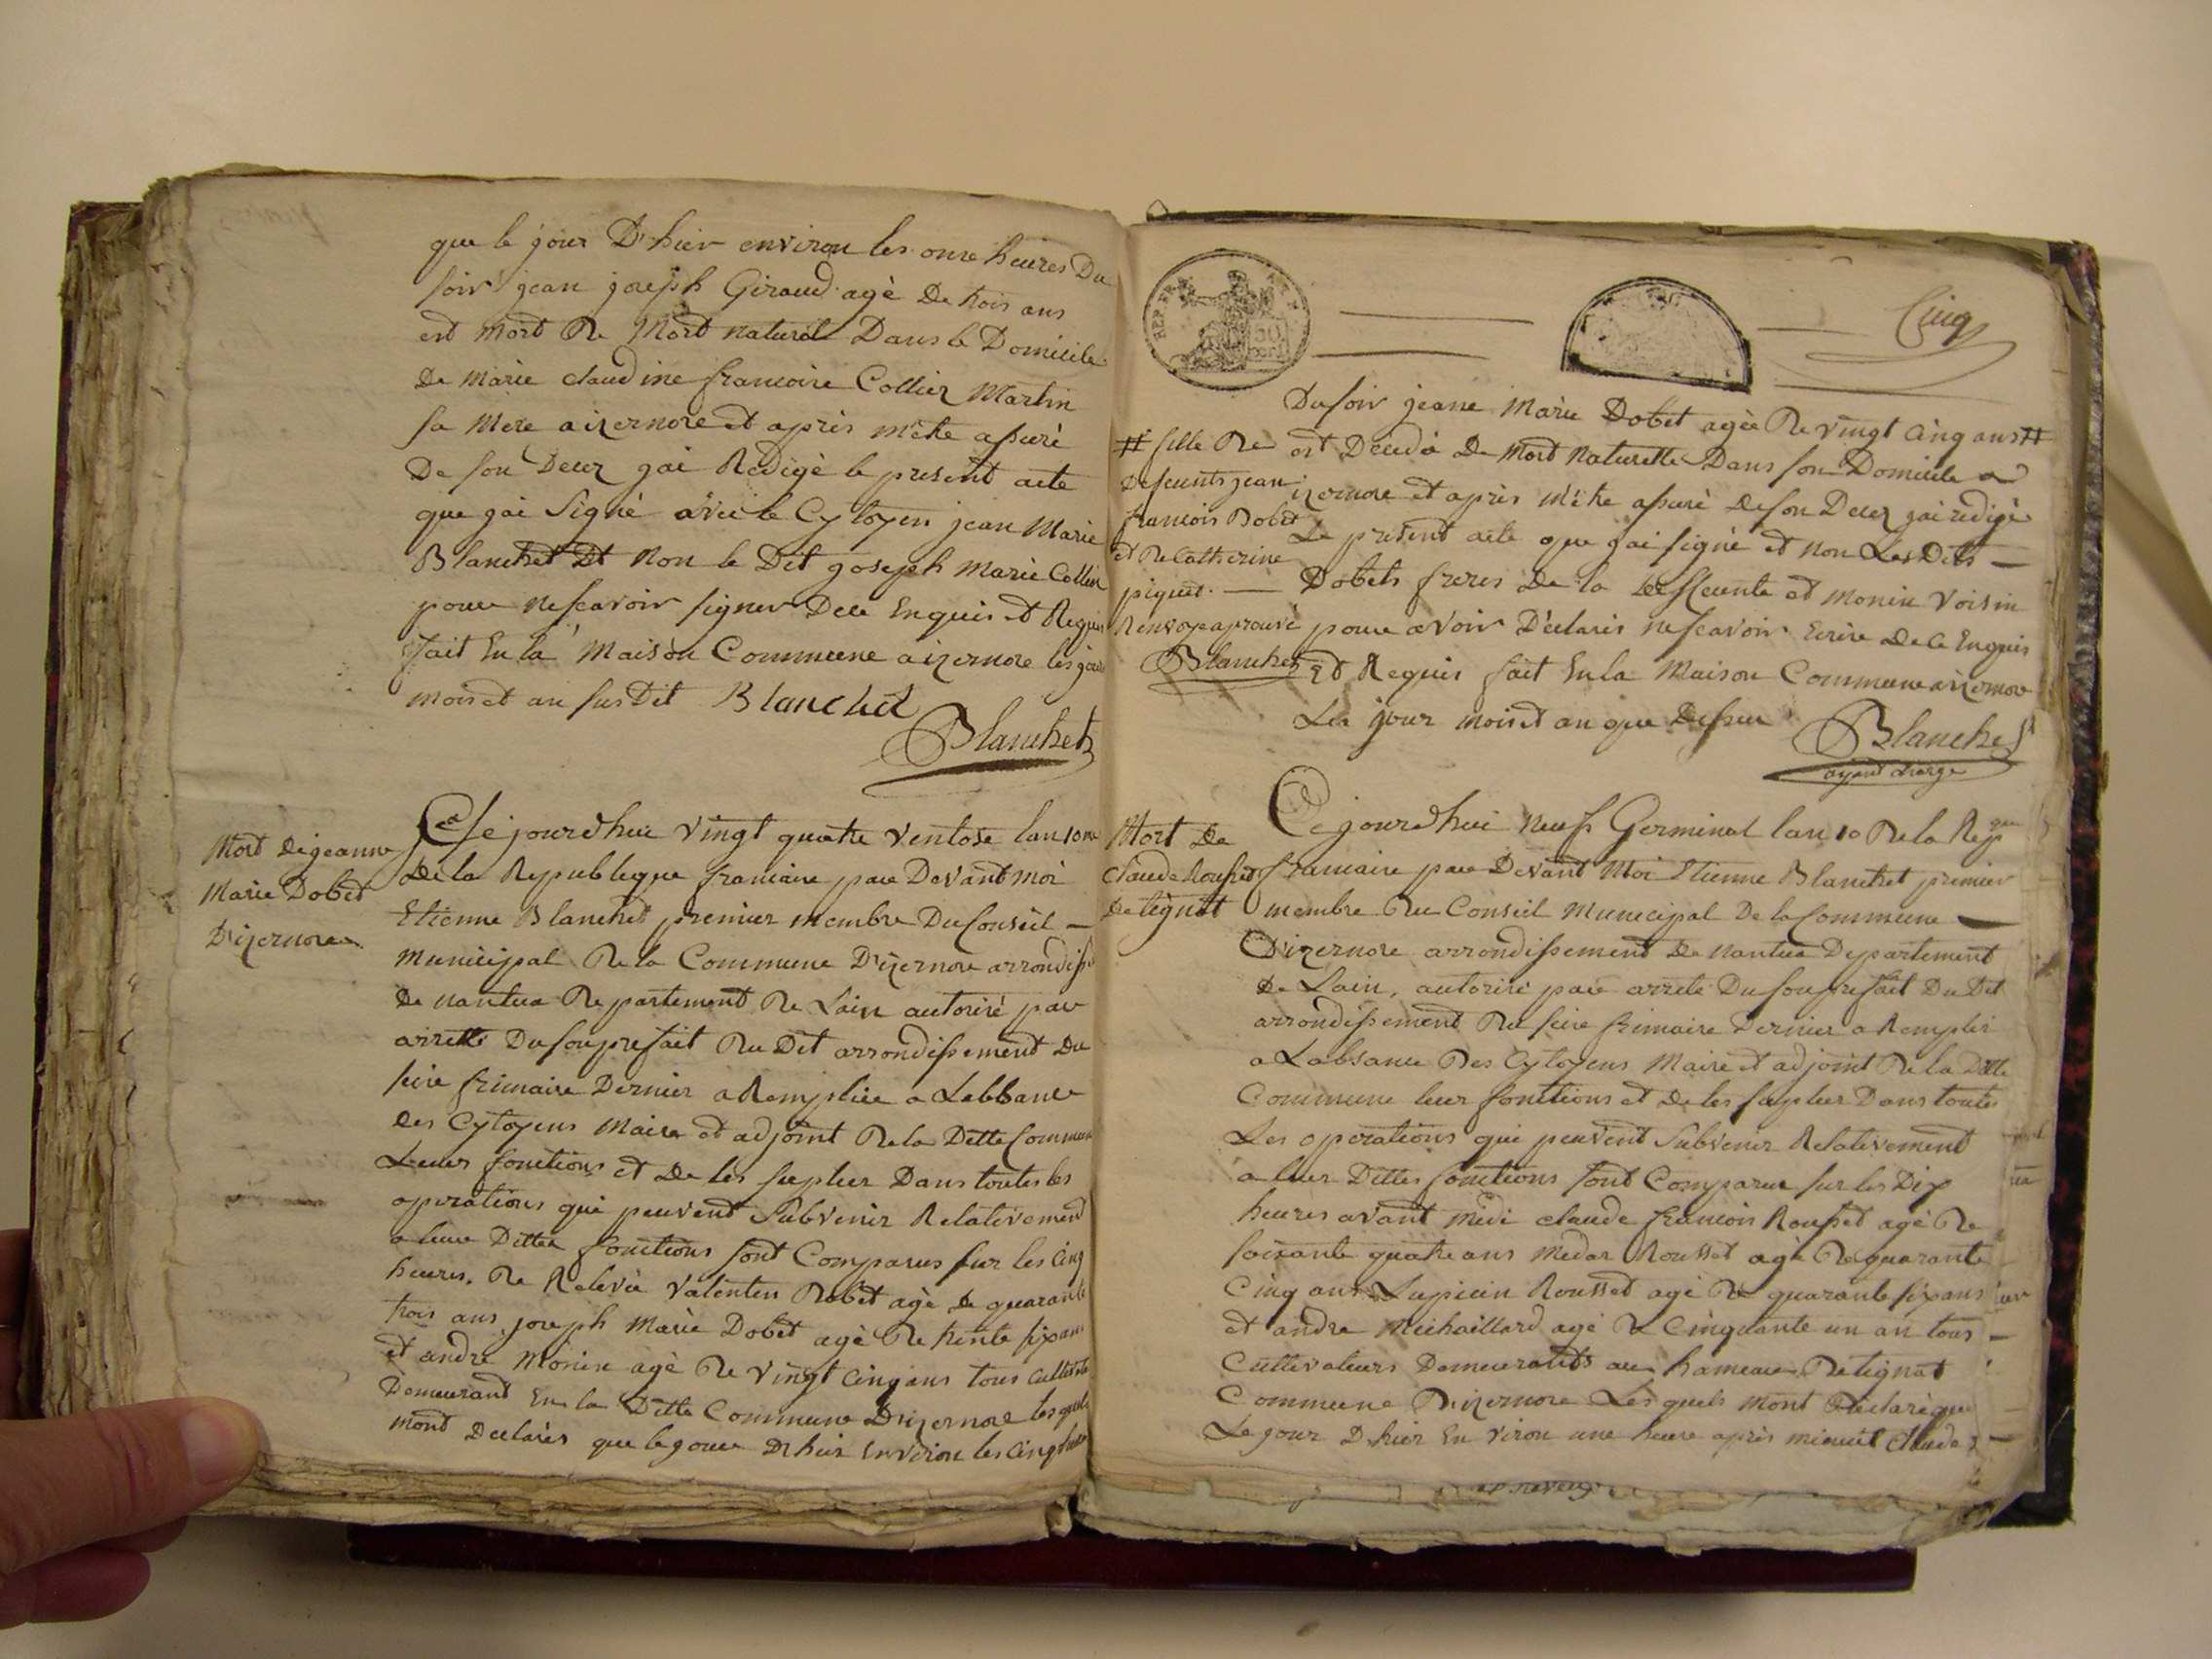 que le jour D'hier environ les onze heures Du
soir jean joseph Giraud agé De trois ans
est mort De Mort natural Dans le Domicile
De Marie claudine francoise Collier Martin
sa Mere a izernore et après m'etre assuré
De son Decez jai Redigé le present acte
que jai Signé avec le Cytoyen jean Marie
Blanchet Et Non le Dit joseph Marie Collier
pour ne scavoir signer De ce Enquis et Requis
fait En la Maison Commune a izernore les jour
mois et an susDit Blanchet
Blanchet
Mort de jeanne
Marie Dobet
D'izernore
Ce jourd'hui vingt quatre ventose lan 10me
De la Republique francaise par Devant moi
Etienne Blanchet premier membre Du Conseil —
Municipal De la Commune D'izernore arrondisst
de nantua Departement De Lain autorisé par
arretté Du souprefait Du Dit arrondissement Du
seize frimaire Dernier a Remplire a Labsance
des Cytoyens Maire et adjoint De la Ditte Commune
Leurs fonctions et De les supleer Dans toutes les
operations qui peuvent Subvenir Relativement
a leurs Dittes fonctions sont Comparus sur les Cinq
heures De Relevée valentin Dobet agé de quarante
trois ans joseph Marie Dobet agé De trente six ans
et andré Monin agé De vingt cinq ans tous cultivat
Demeurand En la Ditte Commune D'izernore lesquels
mont Declarés que le jour D'hier Environ les cinq heures
Cinq
REP. FRA.
Du soir jeane Marie Dobet agée De vingt cinq ans #
est Decedé De Mort Naturelle Dans son Domicile a
izernore et après m'etre assuré De son Decez jai redigé
Le present acte que jai signé et non Les Dits —
Dobets freres De la Deffeunte et Monin voisin
pour avoir Déclarés ne scavoir Ecrire De ce Enquis
Et Requis fait En la Maison Commune a izernore
Les jour mois et an que Dessus
Blanchet
ayant charge
# fille De
Defeunts jean
francois Dobet
et De Catherine
piquet. —
Renvoye aprouvé
Blanchet
Mort De
claude Rousset
De tignat
Ce jourdhui neuf Germinal lan 10 De la Repque
francaise par Devant Moi Etienne Blanchet premier
membre Du Conseil Municipal De la Commune —
D'izernore arrondissement De nantua Departement
de Lain, autorisé par arreté Du souprefait Du Dit
arrondissement Du seize frimaire Dernier a Remplir
a Labsance Des Cytoyens Maire et adjoint De la Ditte
Commune leur fonctions et De les supleer Dans toutes
Les operations qui peuvent Subvenir Relativement
a leur Dittes fonctions sont Comparus sur les Dix
heures avant midi claude francois Rousset agé De
soixante quatre ans Medar Rousset agé De quarante
Cinq ans Lupicin Rousset agé De quarante six ans
et andre Michaillard agé De Cinquante un an tous —
Cultivateurs Demeurants au hameau De tignat
Commune D'izernore Lesquels Mont Déclaré que
Le jour D'hier En viron une heure après minuit claude